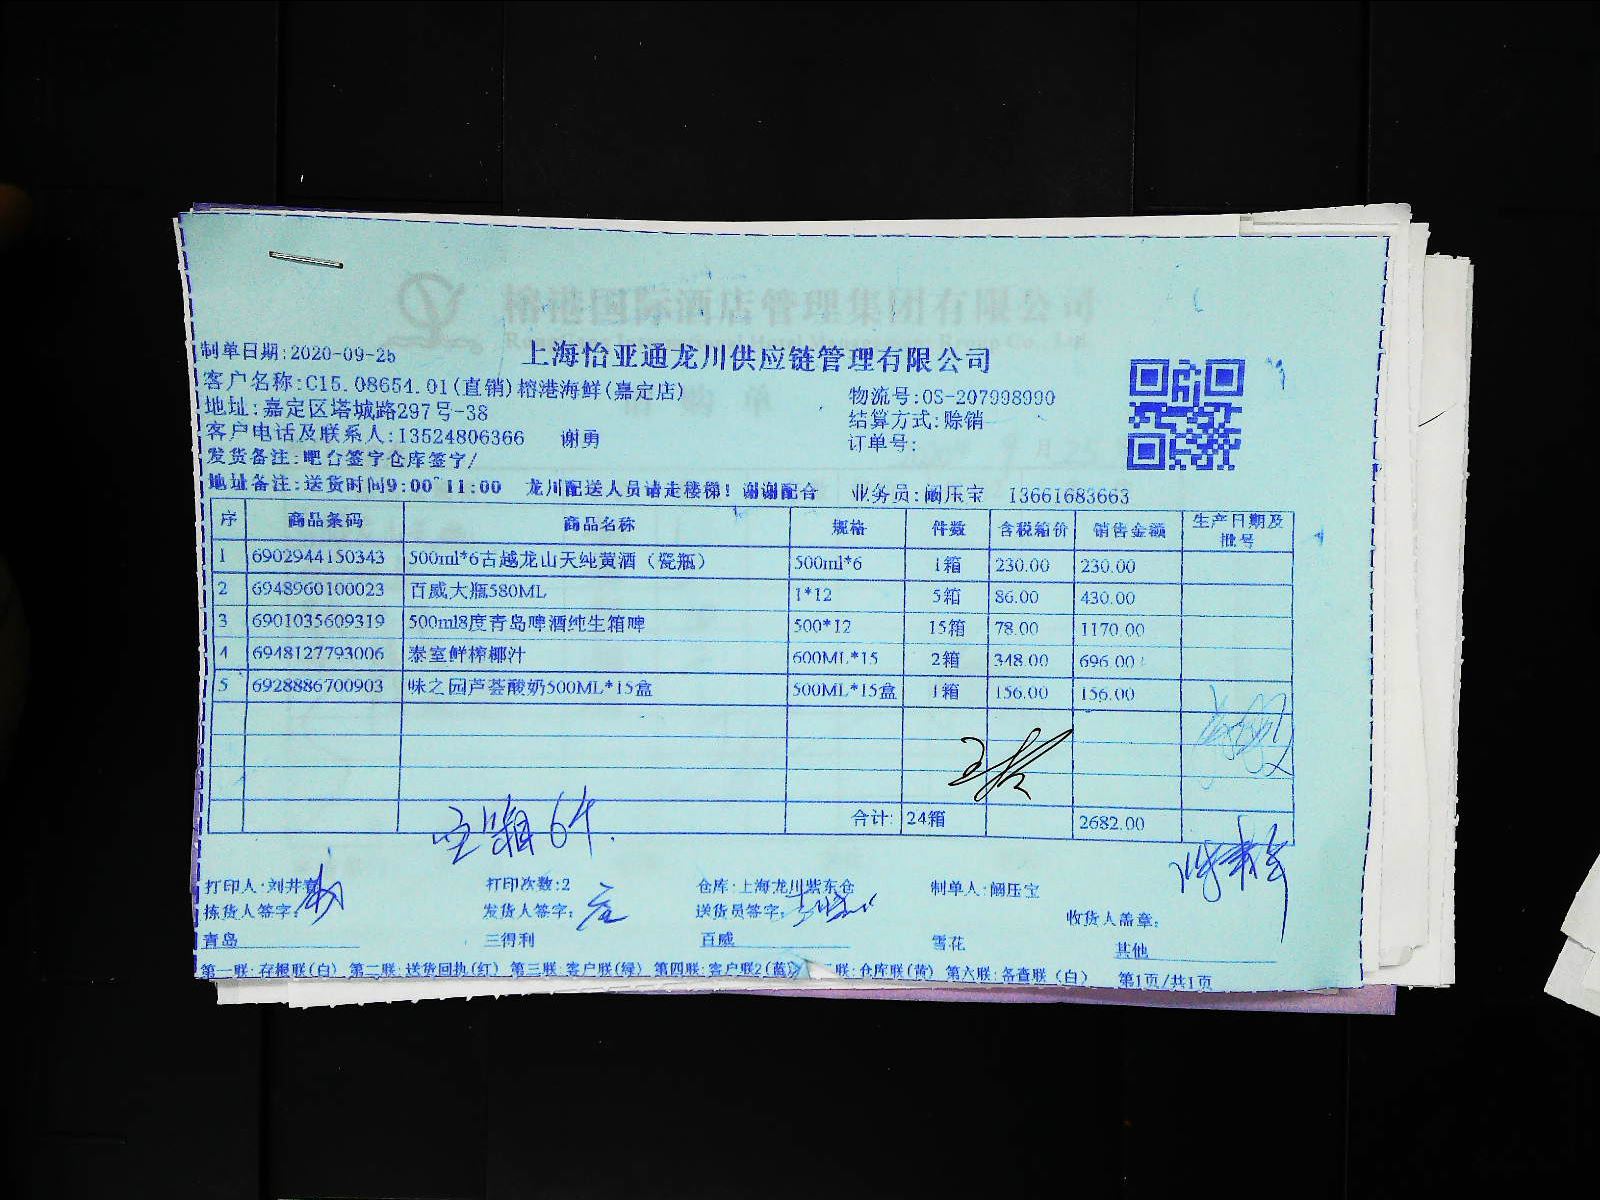 榕港国际酒店管理集团有限公司
上海怡亚通龙川供应链管理有限公司
制单日期:2020-09-25
客户名称:C15.08654.01(直销)榕港海鲜(嘉定店) 物流号:OS-207998990
地址:嘉定区塔城路297号-38 结算方式:赊销
客户电话及联系人:13524806366 谢勇 订单号:
发货备注:吧台签字仓库签字/
地址备注:送货时间9:00~11:00 龙川配送人员请走楼梯!谢谢配合 业务员:阚压宝 13661683663
序 商品条码 商品名称 规格 件数 含税箱价 销售金额 生产日期及批号
1 6902944150343 500ml*6古越龙山天纯黄酒(瓷瓶) 500ml*6 1箱 230.00 230.00
2 6948960100023 百威大瓶580ML 1*12 5箱 86.00 430.00
3 6901035609319 500ml8度青岛啤酒纯生箱啤 500*12 15箱 78.00 1170.00
4 6948127793006 泰室鲜榨椰汁 600ML*15 2箱 348.00 696.00
5 6928886700903 味之园芦荟酸奶500ML*15盒 500ML*15盒 1箱 156.00 156.00
合计: 24箱 2682.00
打印人:刘井 打印次数:2 仓库:上海龙川紫东仓 制单人:阚压宝
拣货人签字: 发货人签字: 送货员签字: 收货人盖章:
青岛 三得利 百威 雪花 其他
第一联:存根联(白) 第二联:送货回执(红) 第三联:客户联(绿) 第四联:客户联2(蓝) 联:仓库联(黄) 第六联:备查联(白) 第1页/共1页